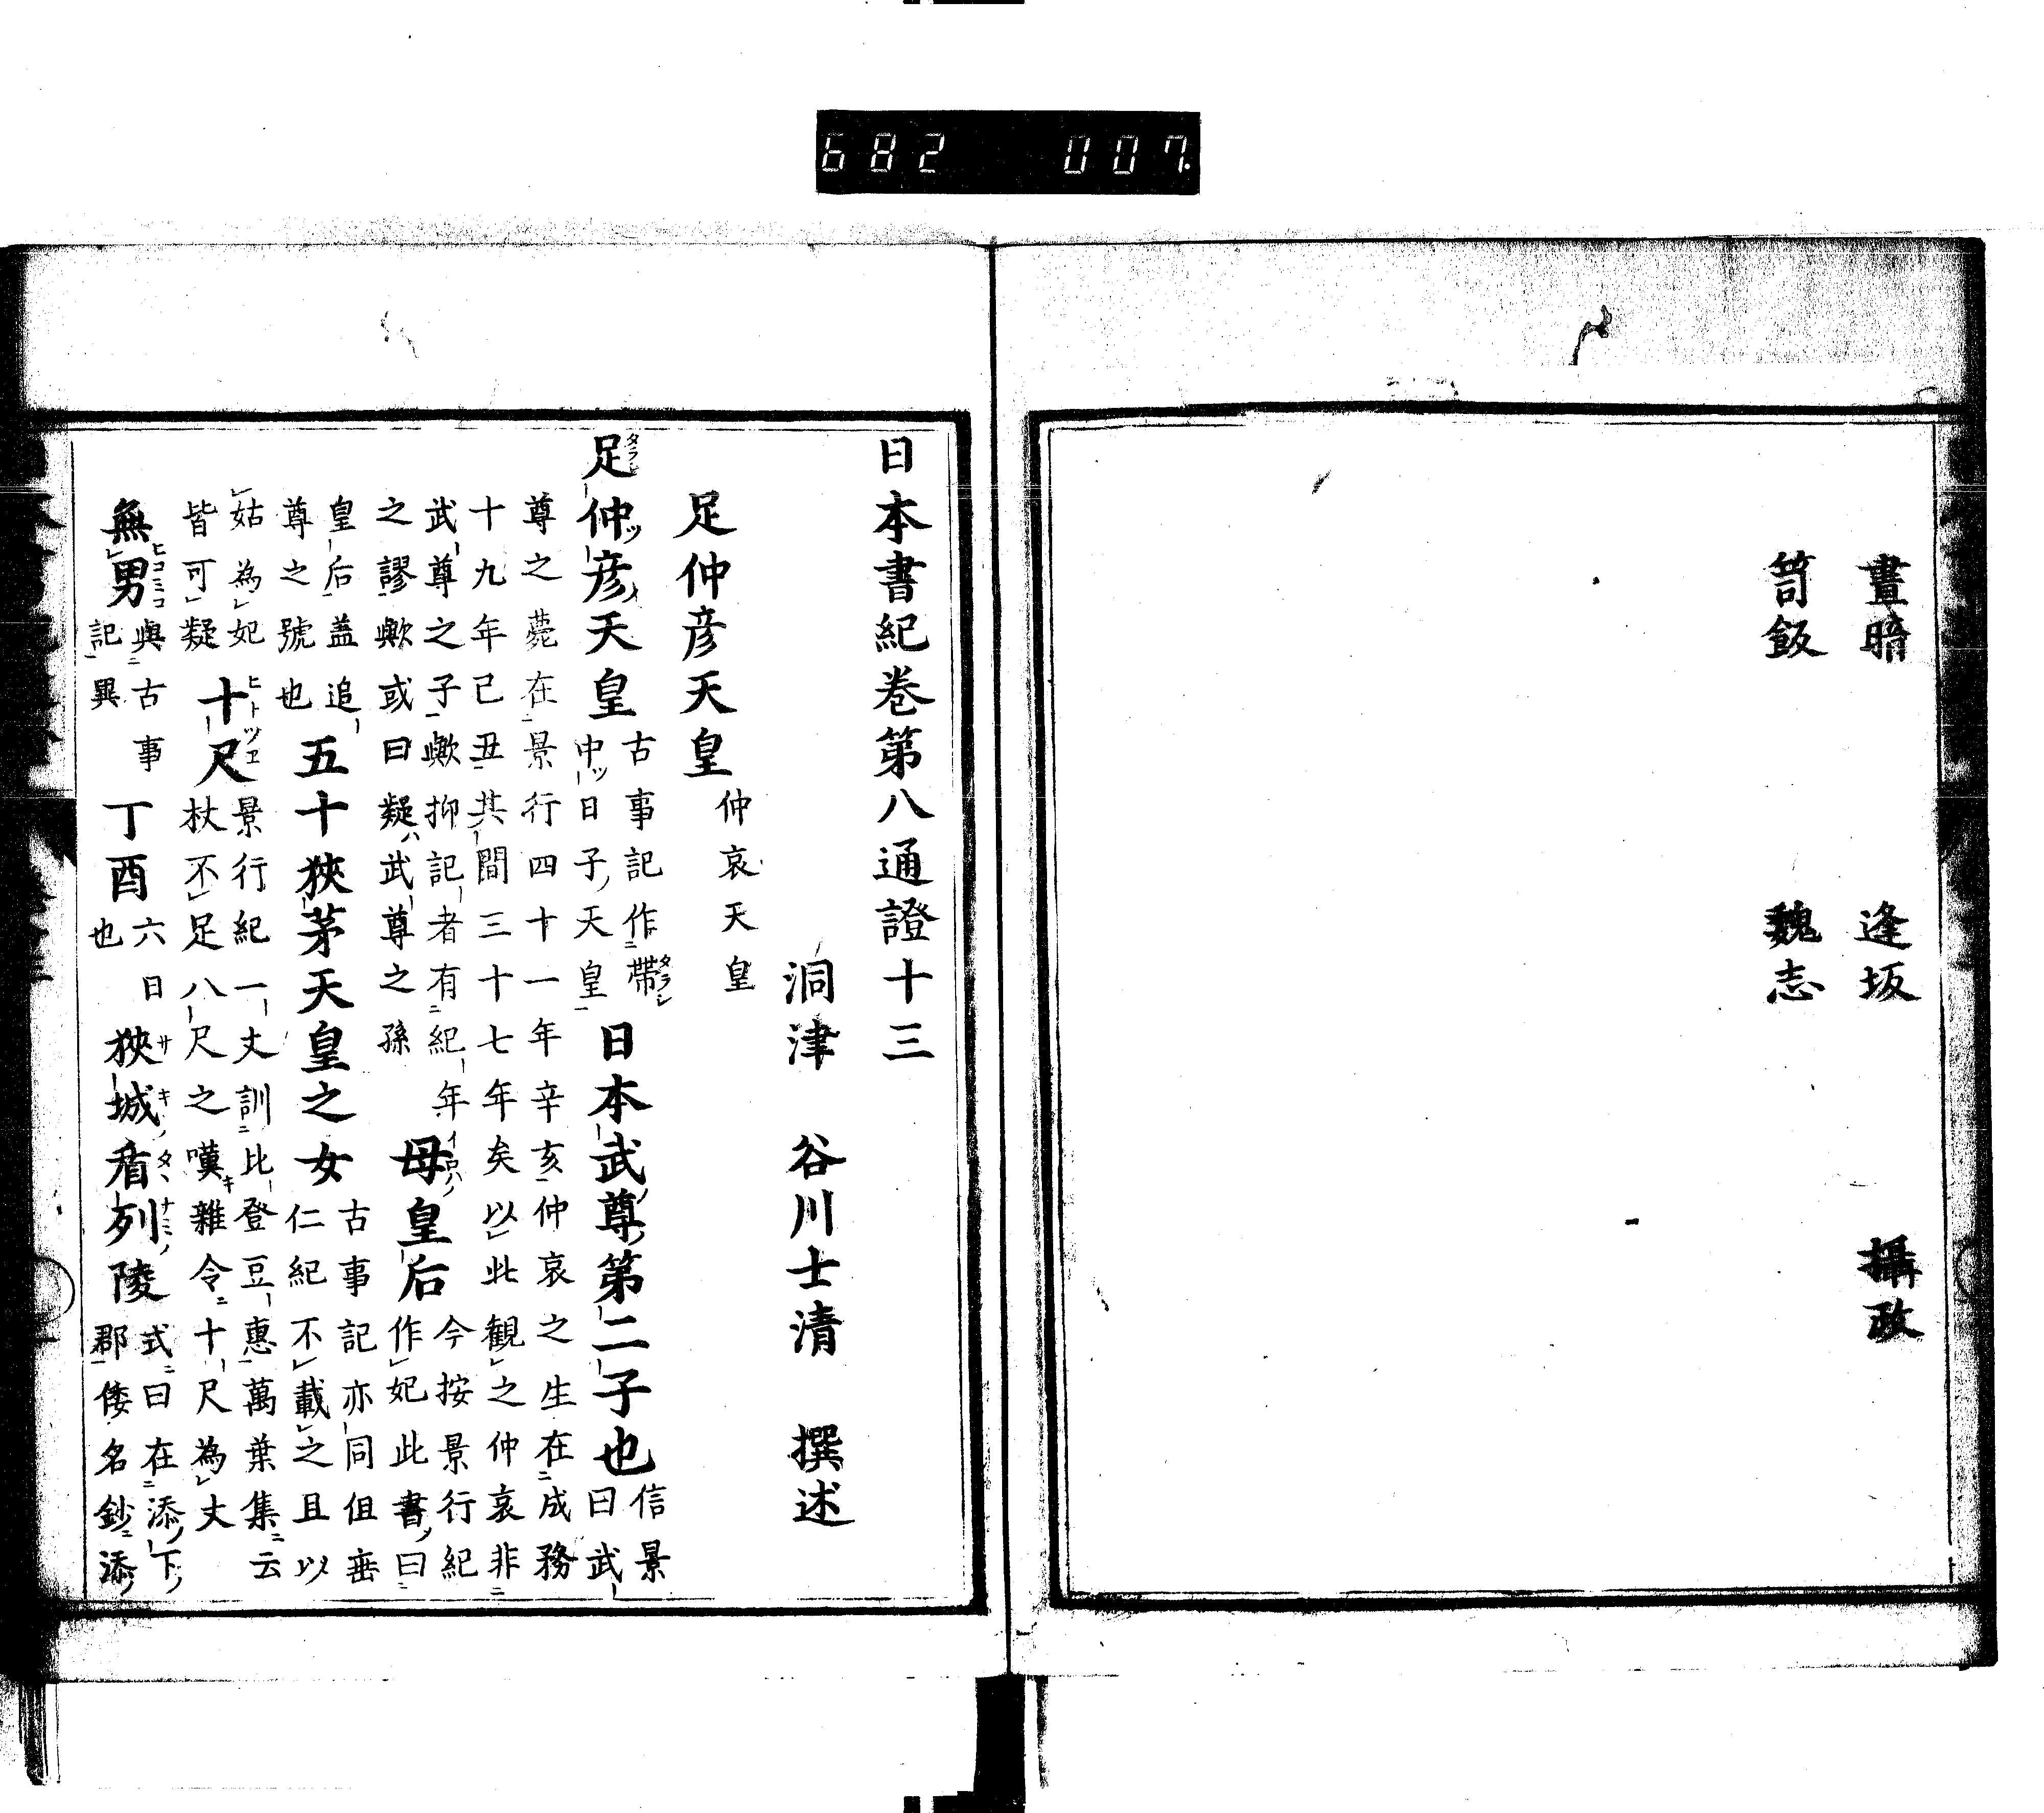 682 007
晝暗 逢坂 攝政
笥飯 魏志
日本書紀巻第八通證十三
洞津 谷川士清 撰述
足仲彦天皇 仲哀天皇
足仲彦天皇 古事記作帶
中日子天皇 日本武尊第二子也 信景
曰武
尊之薨在景行四十一年辛亥仲哀之生在成務
十九年己丑其間三十七年矣以此觀之仲哀非
武尊之子歟抑記者有紀年
之謬歟或曰疑武尊之孫 母皇后 今按景行紀
作妃此書曰
皇后盖追
尊之號也 五十狹茅天皇之女 古事記亦同但垂
仁紀不載之且以
姑為妃
皆可疑 十尺 景行紀一丈訓比登豆惠萬葉集云
杖不足八尺之嘆雜令十尺為丈
無男 與古事
記異 丁酉 六日
也 狹城盾列陵 式曰在添下
郡倭名鈔添